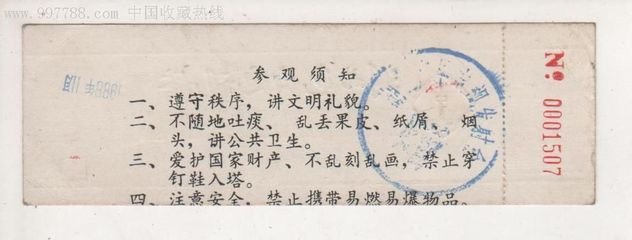 www.997788.com 中国收藏热线
参观须知
一、遵守秩序，讲文明礼貌。
二、不随地吐痰、乱丢果皮、纸屑、烟
头，讲公共卫生。
三、爱护国家财产、不乱刻乱画，禁止穿
钉鞋入塔。
四、注意安全，禁止携带易燃易爆物品。
№ 0001507